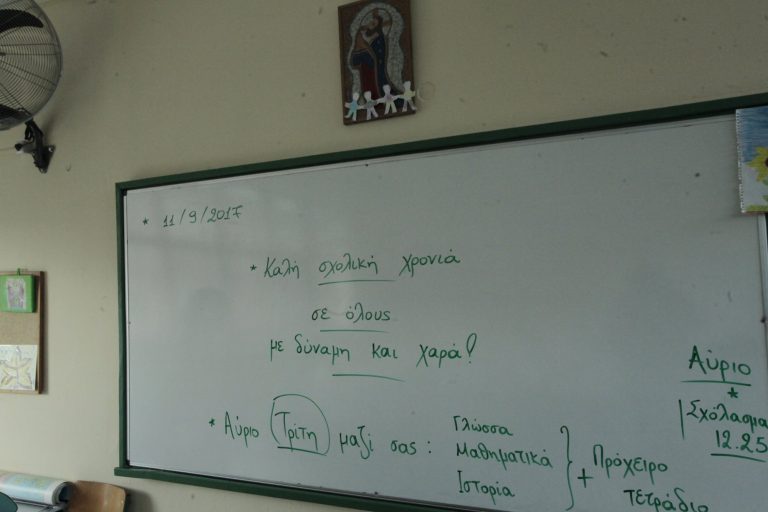 * 11/9/2017
* Καλή σχολική χρονιά
σε όλους
με δύναμη και χαρά!
* Αύριο Τρίτη μαζί σας :
Γλώσσα
Μαθηματικά
Ιστορία
+ Πρόχειρο
τετράδιο
Αύριο
*
Σχόλασμα
12.25